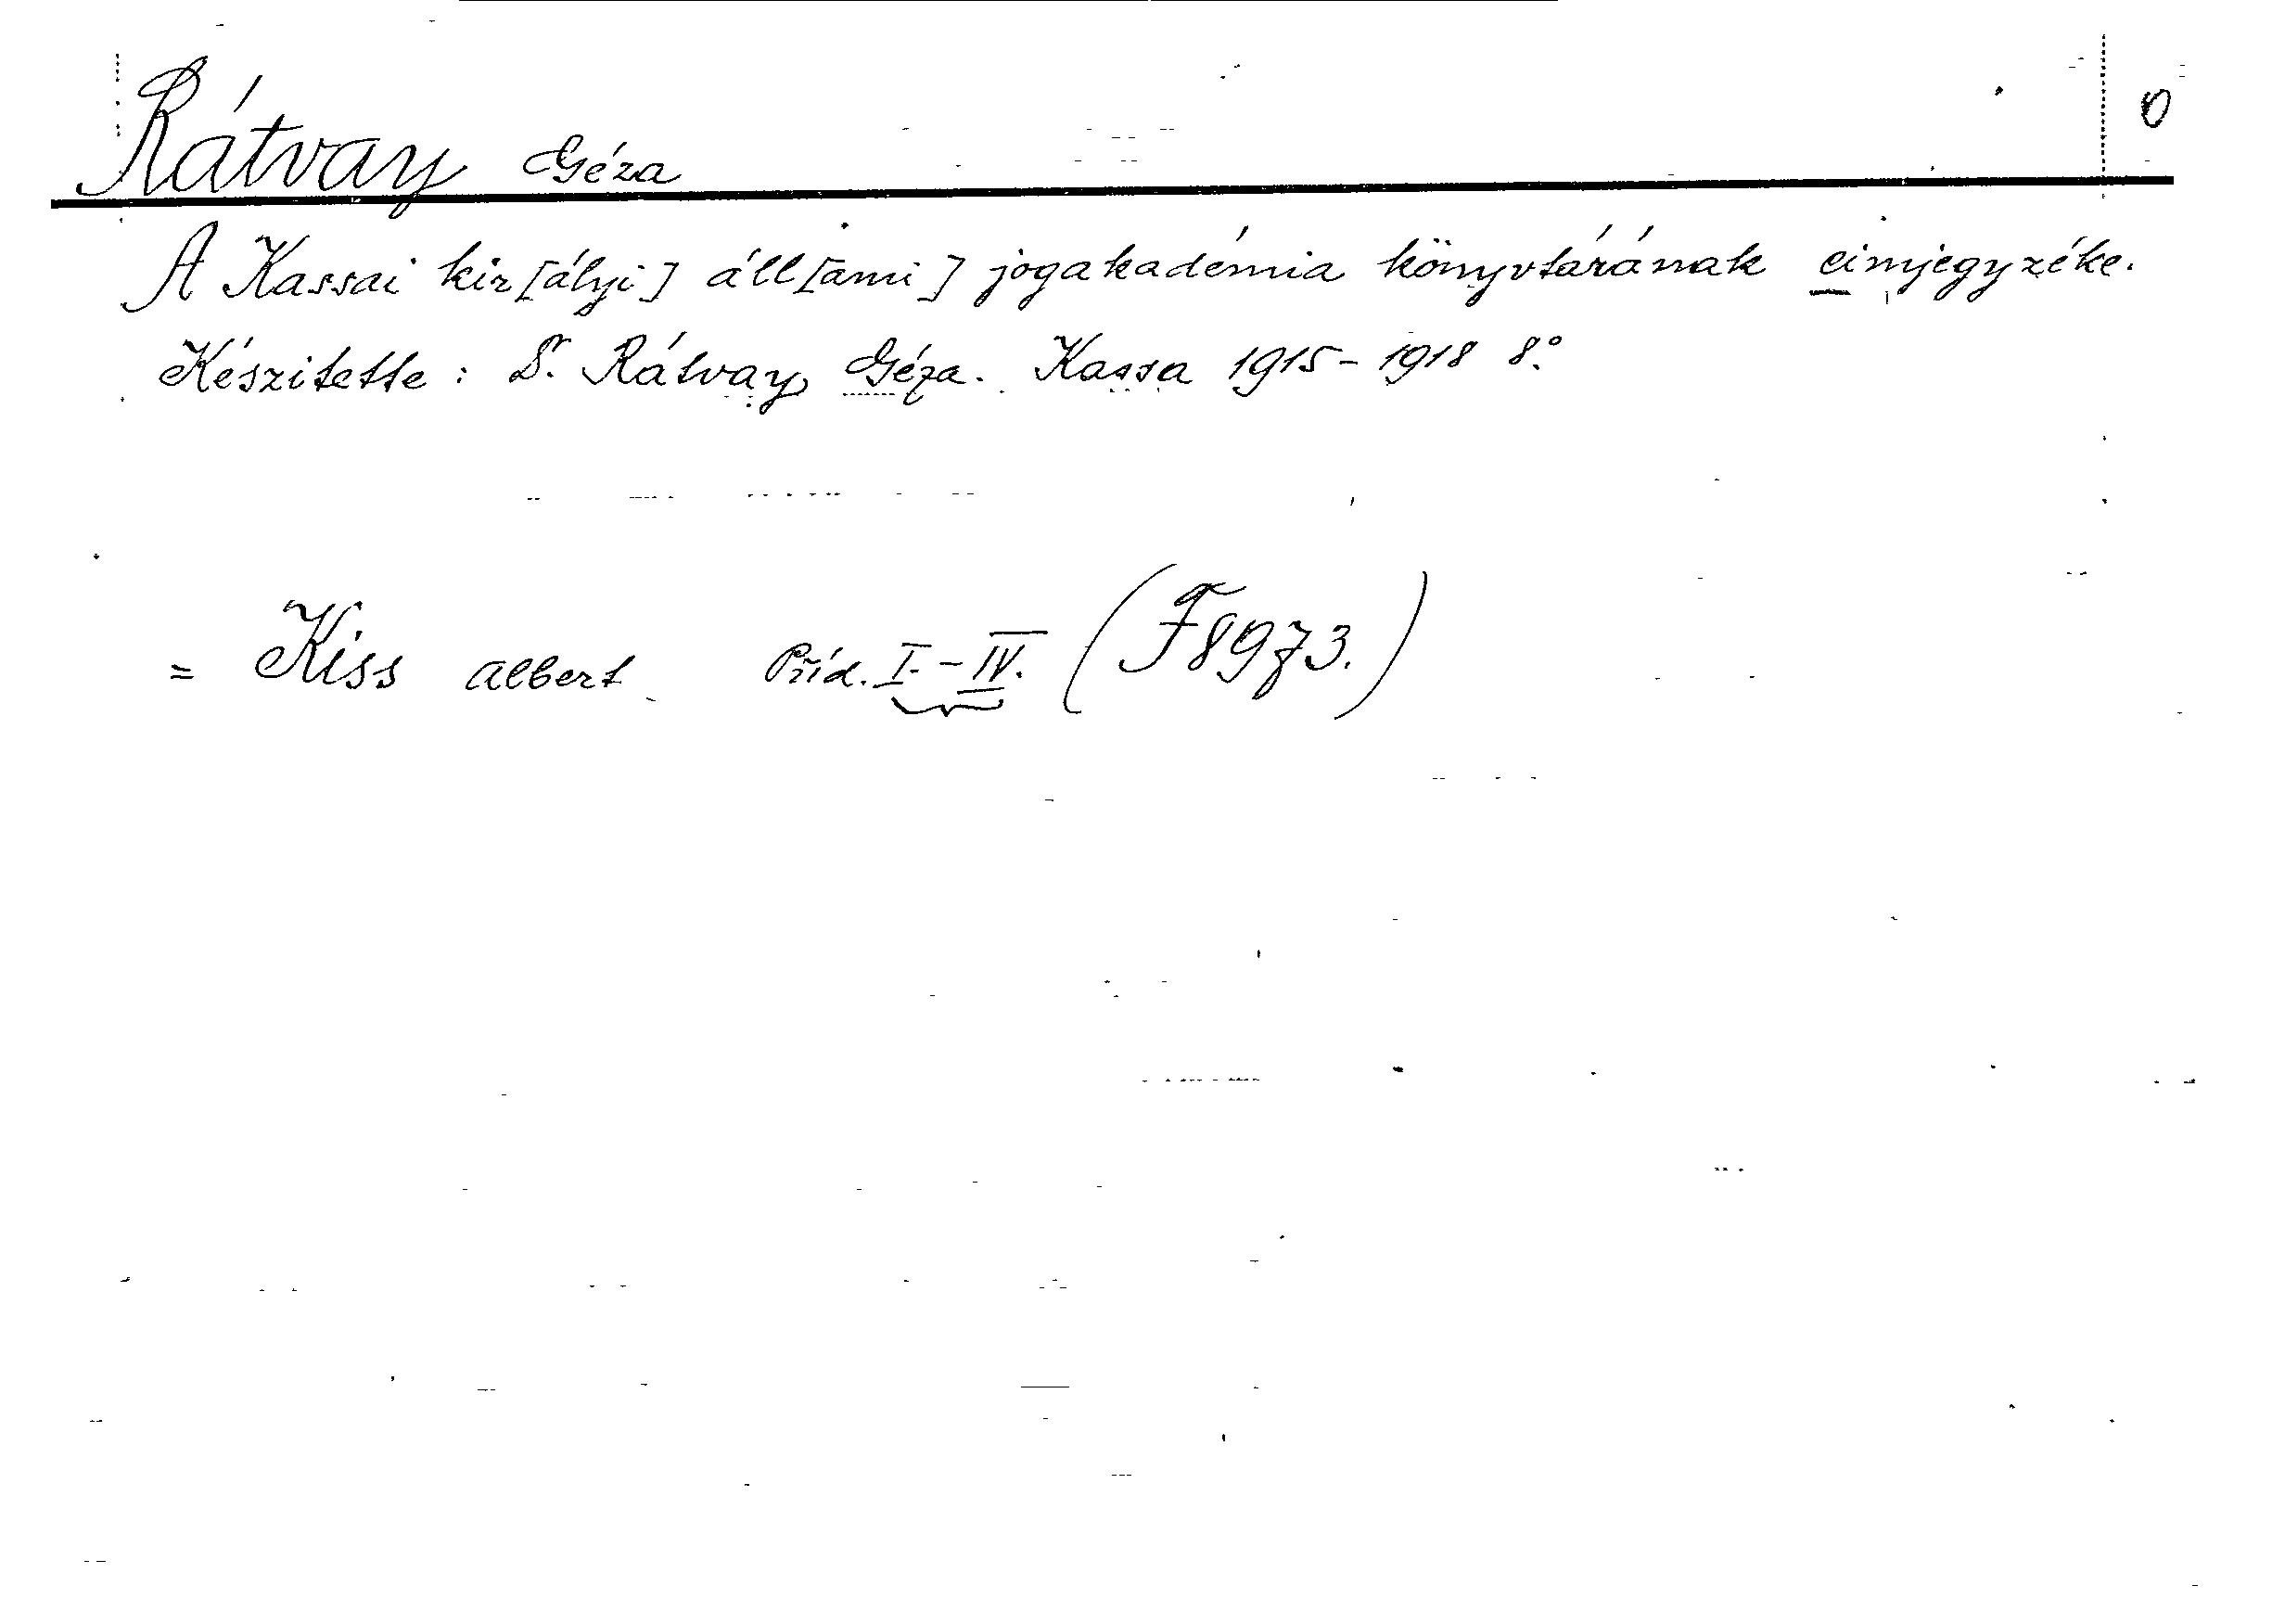 Rátvay Géza 0
A Kassai kir[ályi] áll[ami] jogakadémia könyvtárának cimjegyzéke.
Készitette: Dr. Rátvay Géza. Kassa 1915-1918 8.°
= Kiss Albert. Příd. I.-IV. (F8973.)